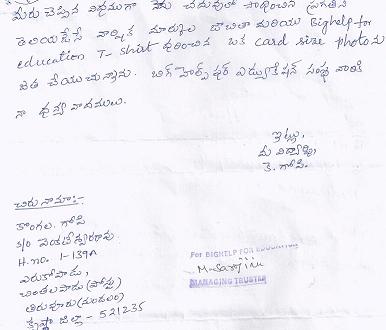 మీరు చెప్పిన విధముగా నేను చదువులో సాధించిన ప్రగతిని
తెలియజేసే వార్షిక మార్కుల జాబితా మరియు Bighelp for
education T- shirt ధరించిన ఒక card size photo ను
జత చేయుచున్నాను. బిగ్ హెల్ప్ ఫర్ ఎడ్యుకేషన్ సంస్థ వారికి
నా ధన్యవాదములు.
ఇట్లు,
మీ విద్యార్థి,
కె. గోపి.
చిరునామా:-
గోపి
S/o వెంకటేశ్వరరావు
H.no. 1-139A
ఎరుకోపాడు,
చింతలపాడు (పోస్టు)
తిరువూరు (మండలం)
కృష్ణా జిల్లా - 521235
For BIGHELP FOR EDUCATION
MANAGING TRUSTEE